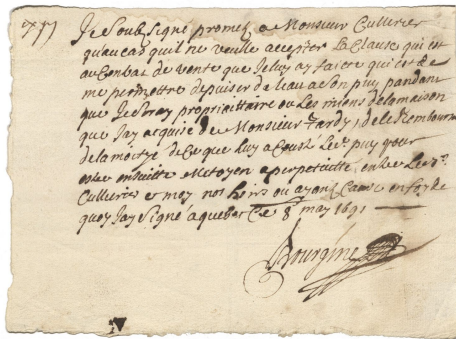 Je Soubsigné promet a Monsieur Cullerier
qu'au cas quil ne veuille accepter la Clause qui est
au Contrat de vente que Je luy ay faicte qui est de
me permettre de puiser de leau a son puy pandant
que Je seray propriettaire ou Les miens de la maison
que Jay acquise de Monsieur Tardy, de le Rembourcer
de la moitye de Ce que luy a Cousté Le puy pour
estre ensuitte Mitoyen a perpetuitté entre le
Cullerier et moy nos hoirs ou ayans Cause en foy de
quoy Jay Signé a quebec Ce 8 may 1691
Bourgine